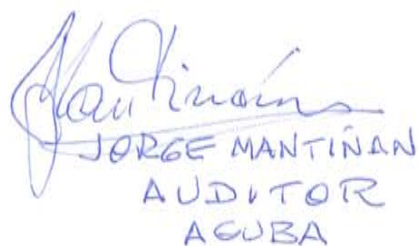 JORGE MANTIÑAN
AUDITOR
AGUBA